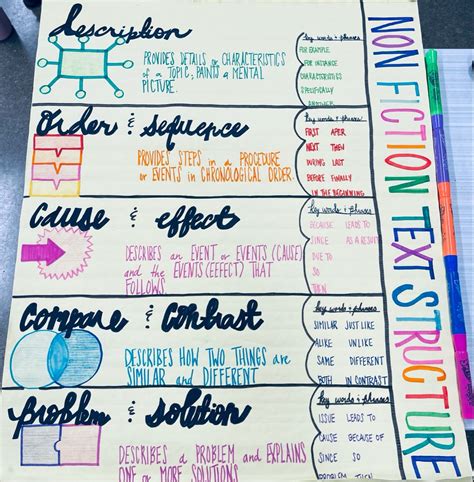 NON FICTION TEXT STRUCTURE
description
PROVIDES DETAILS or CHARACTERISTICS
of a TOPIC; PAINTS a MENTAL
PICTURE.
key words & phrases
FOR EXAMPLE
FOR INSTANCE
CHARACTERISTICS
SPECIFICALLY
ANOTHER
Order & sequence
PROVIDES STEPS in a PROCEDURE
or EVENTS IN CHRONOLOGICAL ORDER.
key words & phrases
FIRST
NEXT THEN
LAST
BEFORE FINALLY
IN THE BEGINNING
Cause & effect
DESCRIBES an EVENT or EVENTS (CAUSE)
and the EVENTS (EFFECT) THAT
FOLLOWS
key words & phrases
BECAUSE LEADS TO
SINCE AS A RESULT
DUE TO
SO
THEN
Compare & Contrast
DESCRIBES HOW TWO THINGS are
SIMILAR and DIFFERENT
key words & phrases
SIMILAR JUST LIKE
ALIKE UNLIKE
SAME DIFFERENT
BOTH IN CONTRAST
problem & solution
DESCRIBES a PROBLEM and EXPLAINS
ONE or MORE SOLUTIONS
key words & phrases
ISSUE LEADS TO
CAUSE BECAUSE OF
SINCE SO
PROBLEM THEN